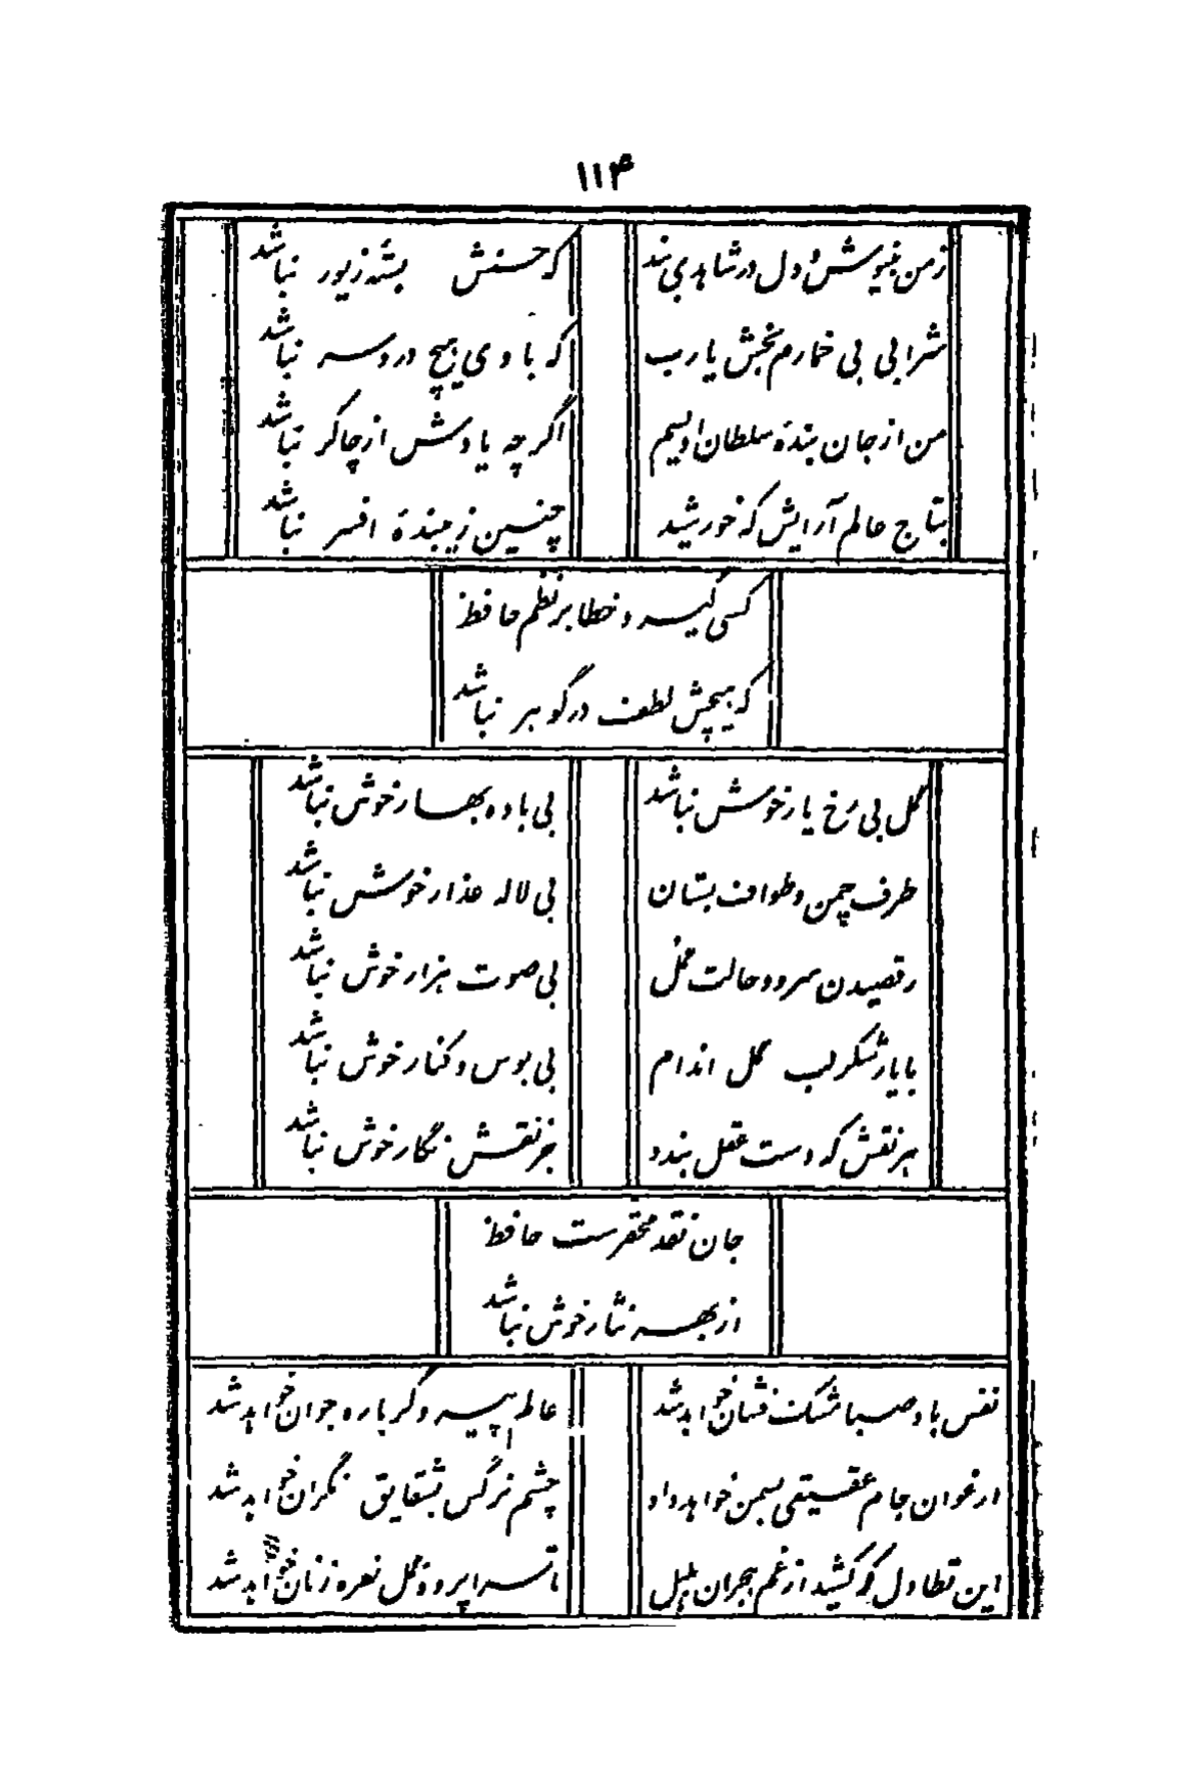 ۱۱۴
زمن بنیوش و دل در شاهدی بند
که حسنش بستهٔ زیور نباشد
شرابی بی خمارم بخش یا رب
که با وی هیچ درد سر نباشد
من از جان بندهٔ سلطان اویسم
اگر چه یادش از چاکر نباشد
بتاج عالم آرایش که خورشید
چنین زیبندهٔ افسر نباشد
کسی گیرد خطا بر نظم حافظ
که هیچش لطف در گوهر نباشد
گل بی رخ یار خوش نباشد
بی باده بهار خوش نباشد
طرف چمن و طواف بستان
بی لاله عذار خوش نباشد
رقصیدن سرو و حالت گل
بی صوت هزار خوش نباشد
با یار شکر لب گل اندام
بی بوس و کنار خوش نباشد
هر نقش که دست عقل بندد
جز نقش نگار خوش نباشد
جان نقد محقرست حافظ
از بهر نثار خوش نباشد
نفس باد صبا مشک فشان خواهد شد
عالم پیر دگر باره جوان خواهد شد
ارغوان جام عقیقی بسمن خواهد داد
چشم نرگس بشقایق نگران خواهد شد
این تطاول که کشید از غم هجران بلبل
تا سراپردهٔ گل نعره زنان خواهد شد